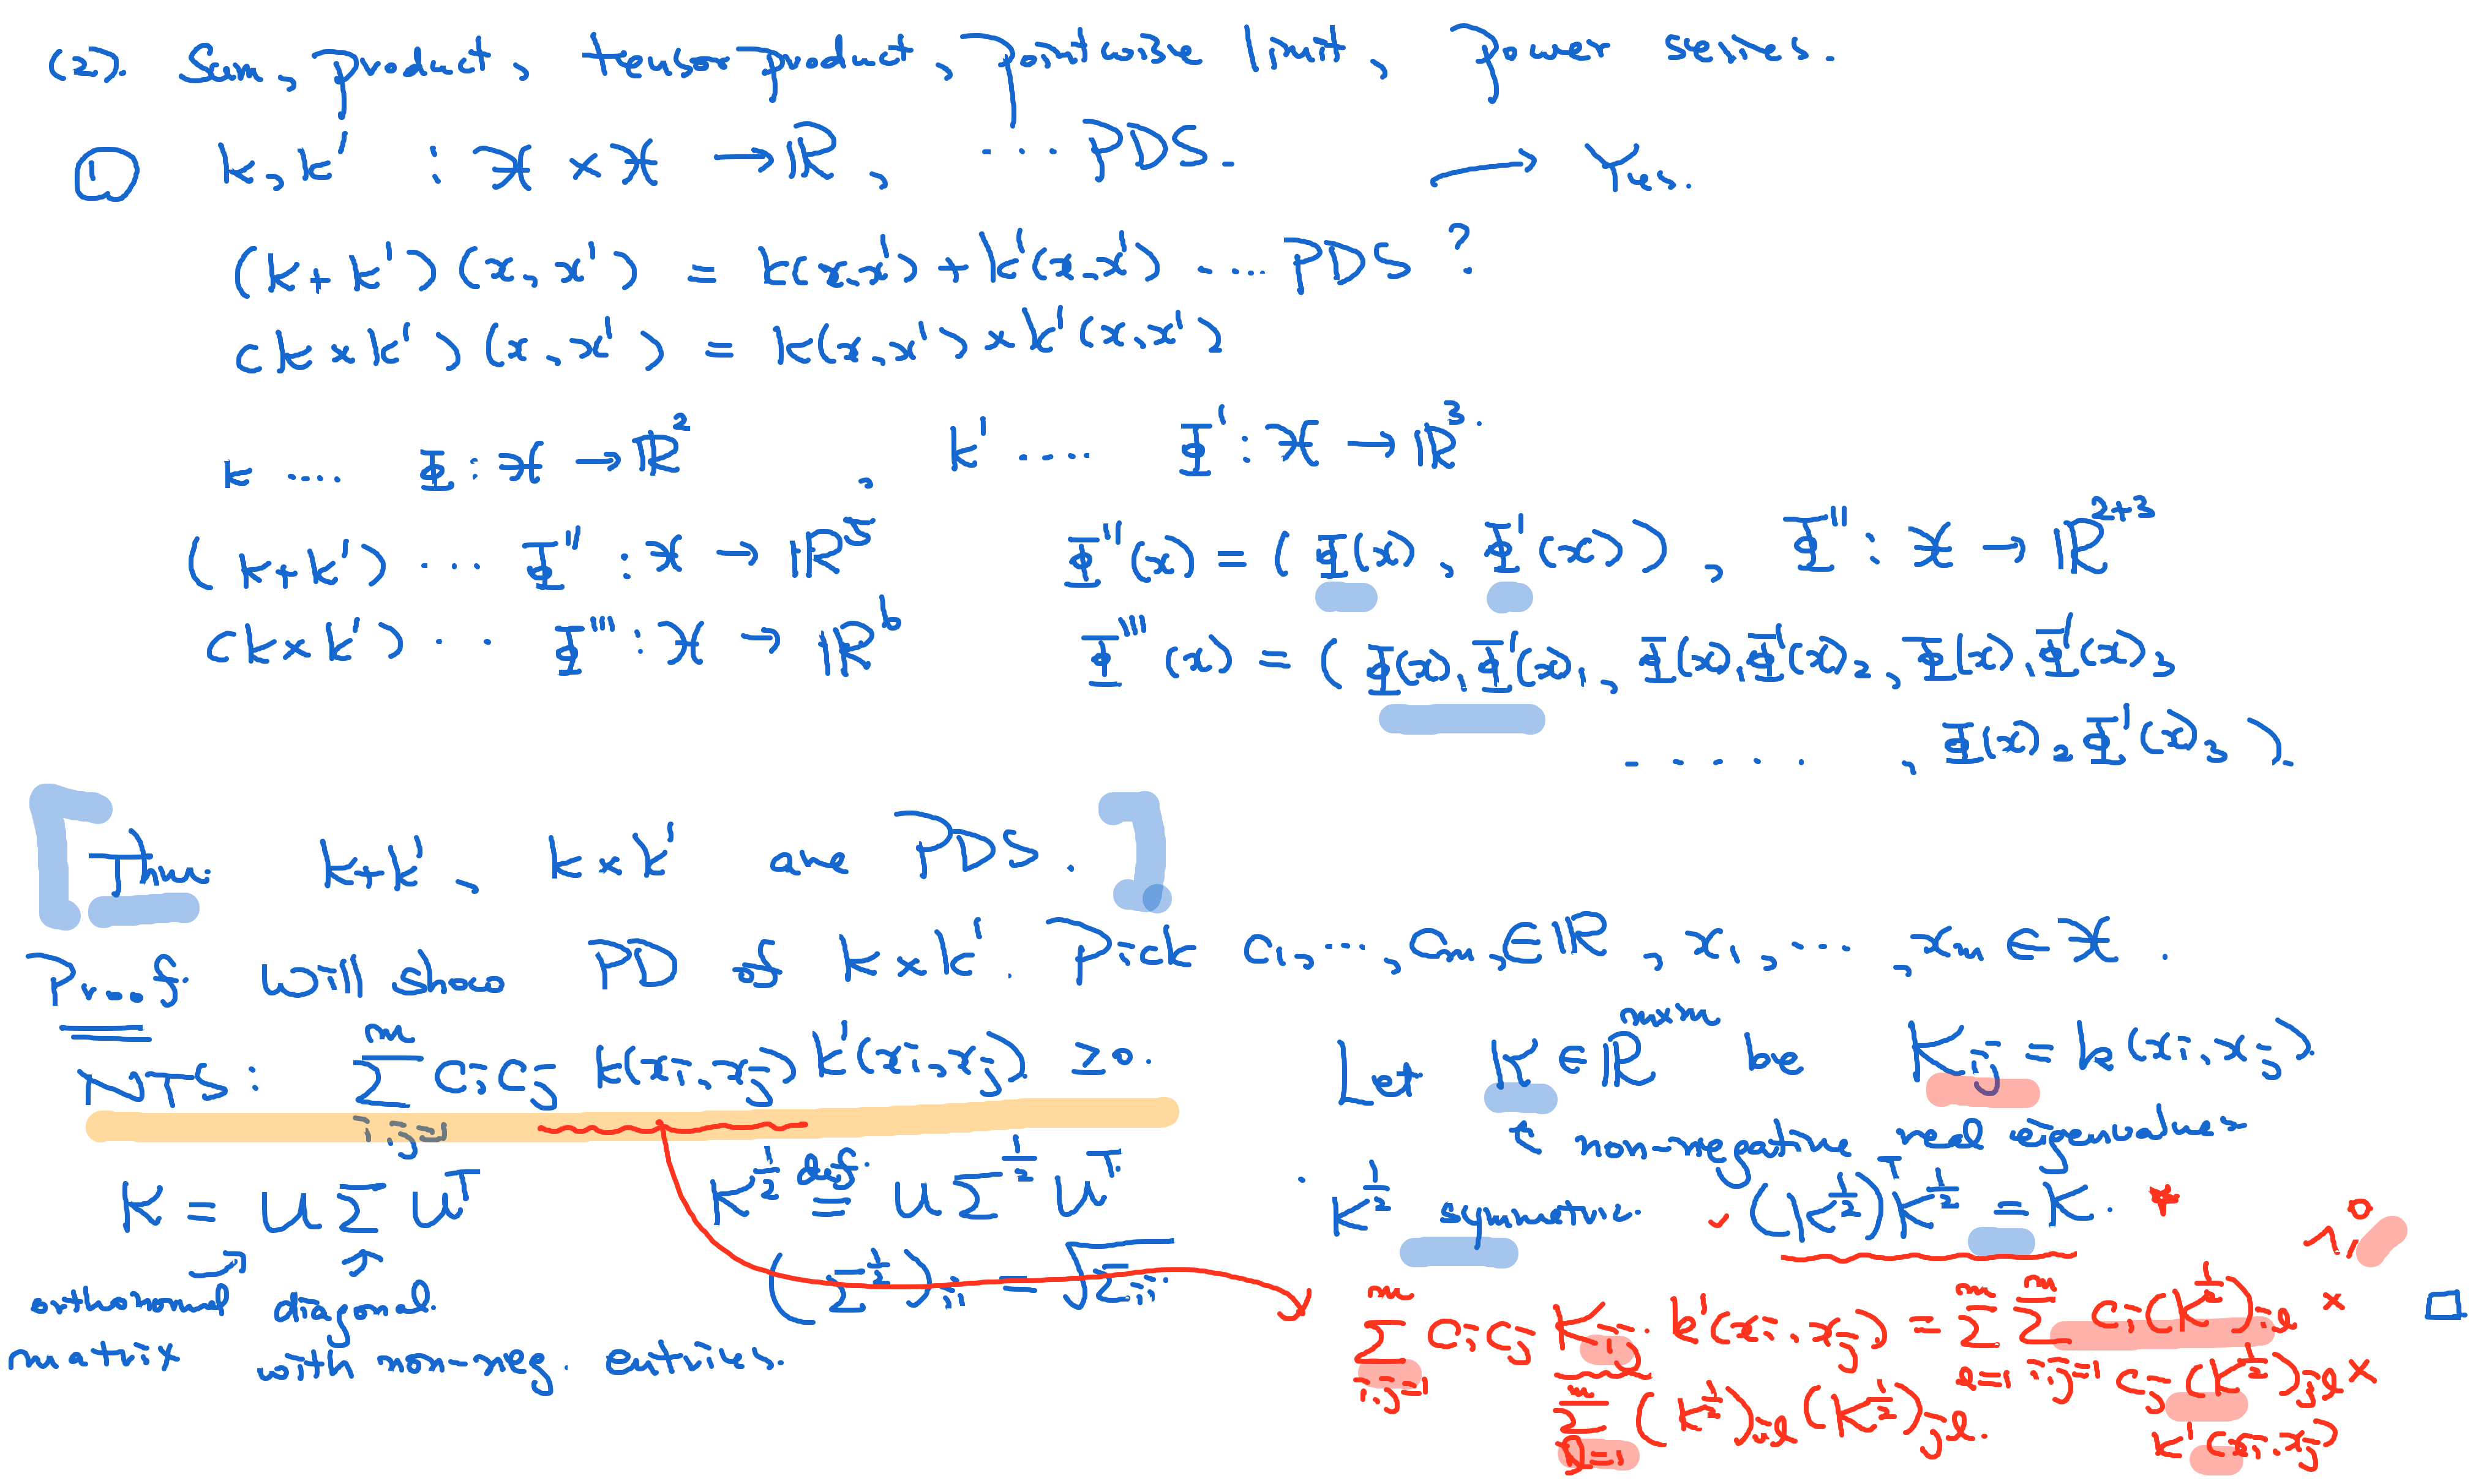 (2). Sum, product, tensor product, pointwise limit, power series.
① k, k' : 𝒳 × 𝒳 → ℝ, ... PDS. → Yes.
(k+k')(x,x') = k(x,x') + k'(x,x') .... PDS ?
(k×k')(x,x') = k(x,x') × k'(x,x')
k .... Φ : 𝒳 → ℝ², k' .... Φ' : 𝒳 → ℝ³.
(k+k') ... Φ'' : 𝒳 → ℝ⁵ Φ''(x) = (Φ(x), Φ'(x)), Φ'' : 𝒳 → ℝ²⁺³
(k×k') ... Φ''' : 𝒳 → ℝ⁶ Φ'''(x) = (Φ(x)₁Φ'(x)₁, Φ(x)₁Φ'(x)₂, Φ(x)₁Φ'(x)₃
......, Φ(x)₂Φ'(x)₃).
[Thm. k+k', k×k' are PDS.]
Proof. Will show PD of k×k'. Pick c₁, ..., cₘ ∈ ℝ, x₁, ..., xₘ ∈ 𝒳.
NTS : ∑_{i,j}^m c_i c_j k(x_i,x_j) k'(x_i,x_j) ≥ 0. Let K ∈ ℝ^{m×m} be K_{ij} = k(x_i,x_j).
↖ non-negative real eigenvalues
K = U Σ Uᵀ K^{1/2} def= U Σ^{1/2} Uᵀ. K^{1/2} symmetric. ✓ (K^{1/2})ᵀ K^{1/2} = K. *
(Σ^{1/2})_{ii} = √Σ_{ii}.
orthonormal matrix
diagonal with non-neg. entries.
∑_{i,j=1}^m c_i c_j K_{ij} k'(x_i,x_j) = ∑_{l=1}^m ∑_{i,j=1}^m c_i (K^{1/2})_{il} × c_j (K^{1/2})_{jl} × k'(x_i,x_j) □
∑_{l=1}^m (K^{1/2})_{il} (K^{1/2})_{jl}.